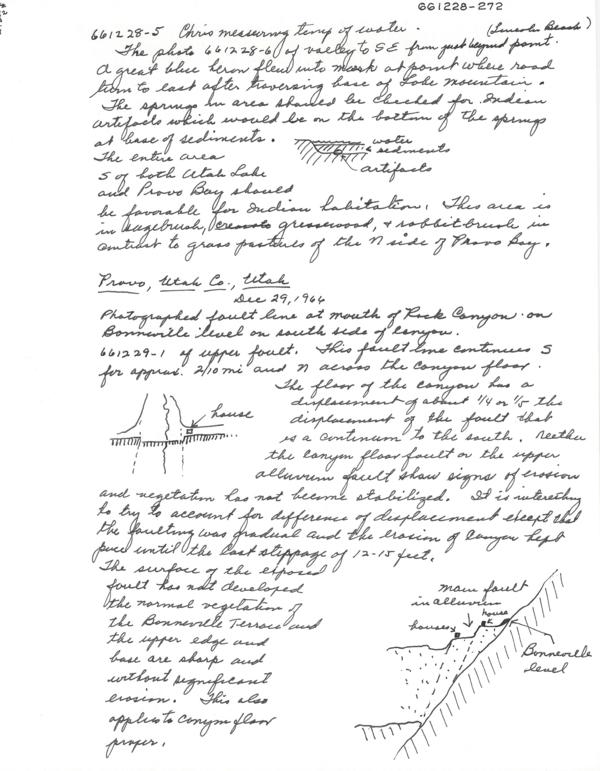 661228-272
661228-5 Chris measuring temp of water. (Lincoln Beach)
The photo 661228-6 of valley to SE from just beyond point.
A great blue heron flew into marsh at point where road
turn to east after traversing base of Lake Mountain.
The springs in area should be checked for Indian
artifacts which would be on the bottom of the springs
at base of sediments.
water
sediments
artifacts
The entire area
S of both Utah Lake
and Provo Bay should
be favorable for Indian habitation. This area is
in sagebrush, greasewood, & rabbitbrush in
contrast to grass pastures of the N side of Provo Bay.
Provo, Utah Co., Utah
Dec 29, 1966
Photographed fault line at mouth of Rock Canyon on
Bonneville level on south side of canyon.
661229-1 of upper fault. This fault line continues S
for approx. 2/10 mi and N across the canyon floor.
The floor of the canyon has a
displacement of about 1/4 or 1/5 the
displacement of the fault that
is a continuum to the south. Neither
the canyon floor fault or the upper
alluvium fault show signs of erosion
house
and vegetation has not become stabilized. It is interesting
to try to account for difference of displacement except that
the faulting was gradual and the erosion of canyon kept
pace until the last slippage of 12-15 feet.
The surface of the exposed
fault has not developed
the normal vegetation of
the Bonneville Terrace and
the upper edge and
base are sharp and
without significant
erosion. This also
applies to canyon floor
proper.
main fault
in alluvium
house
houses
Bonneville
level